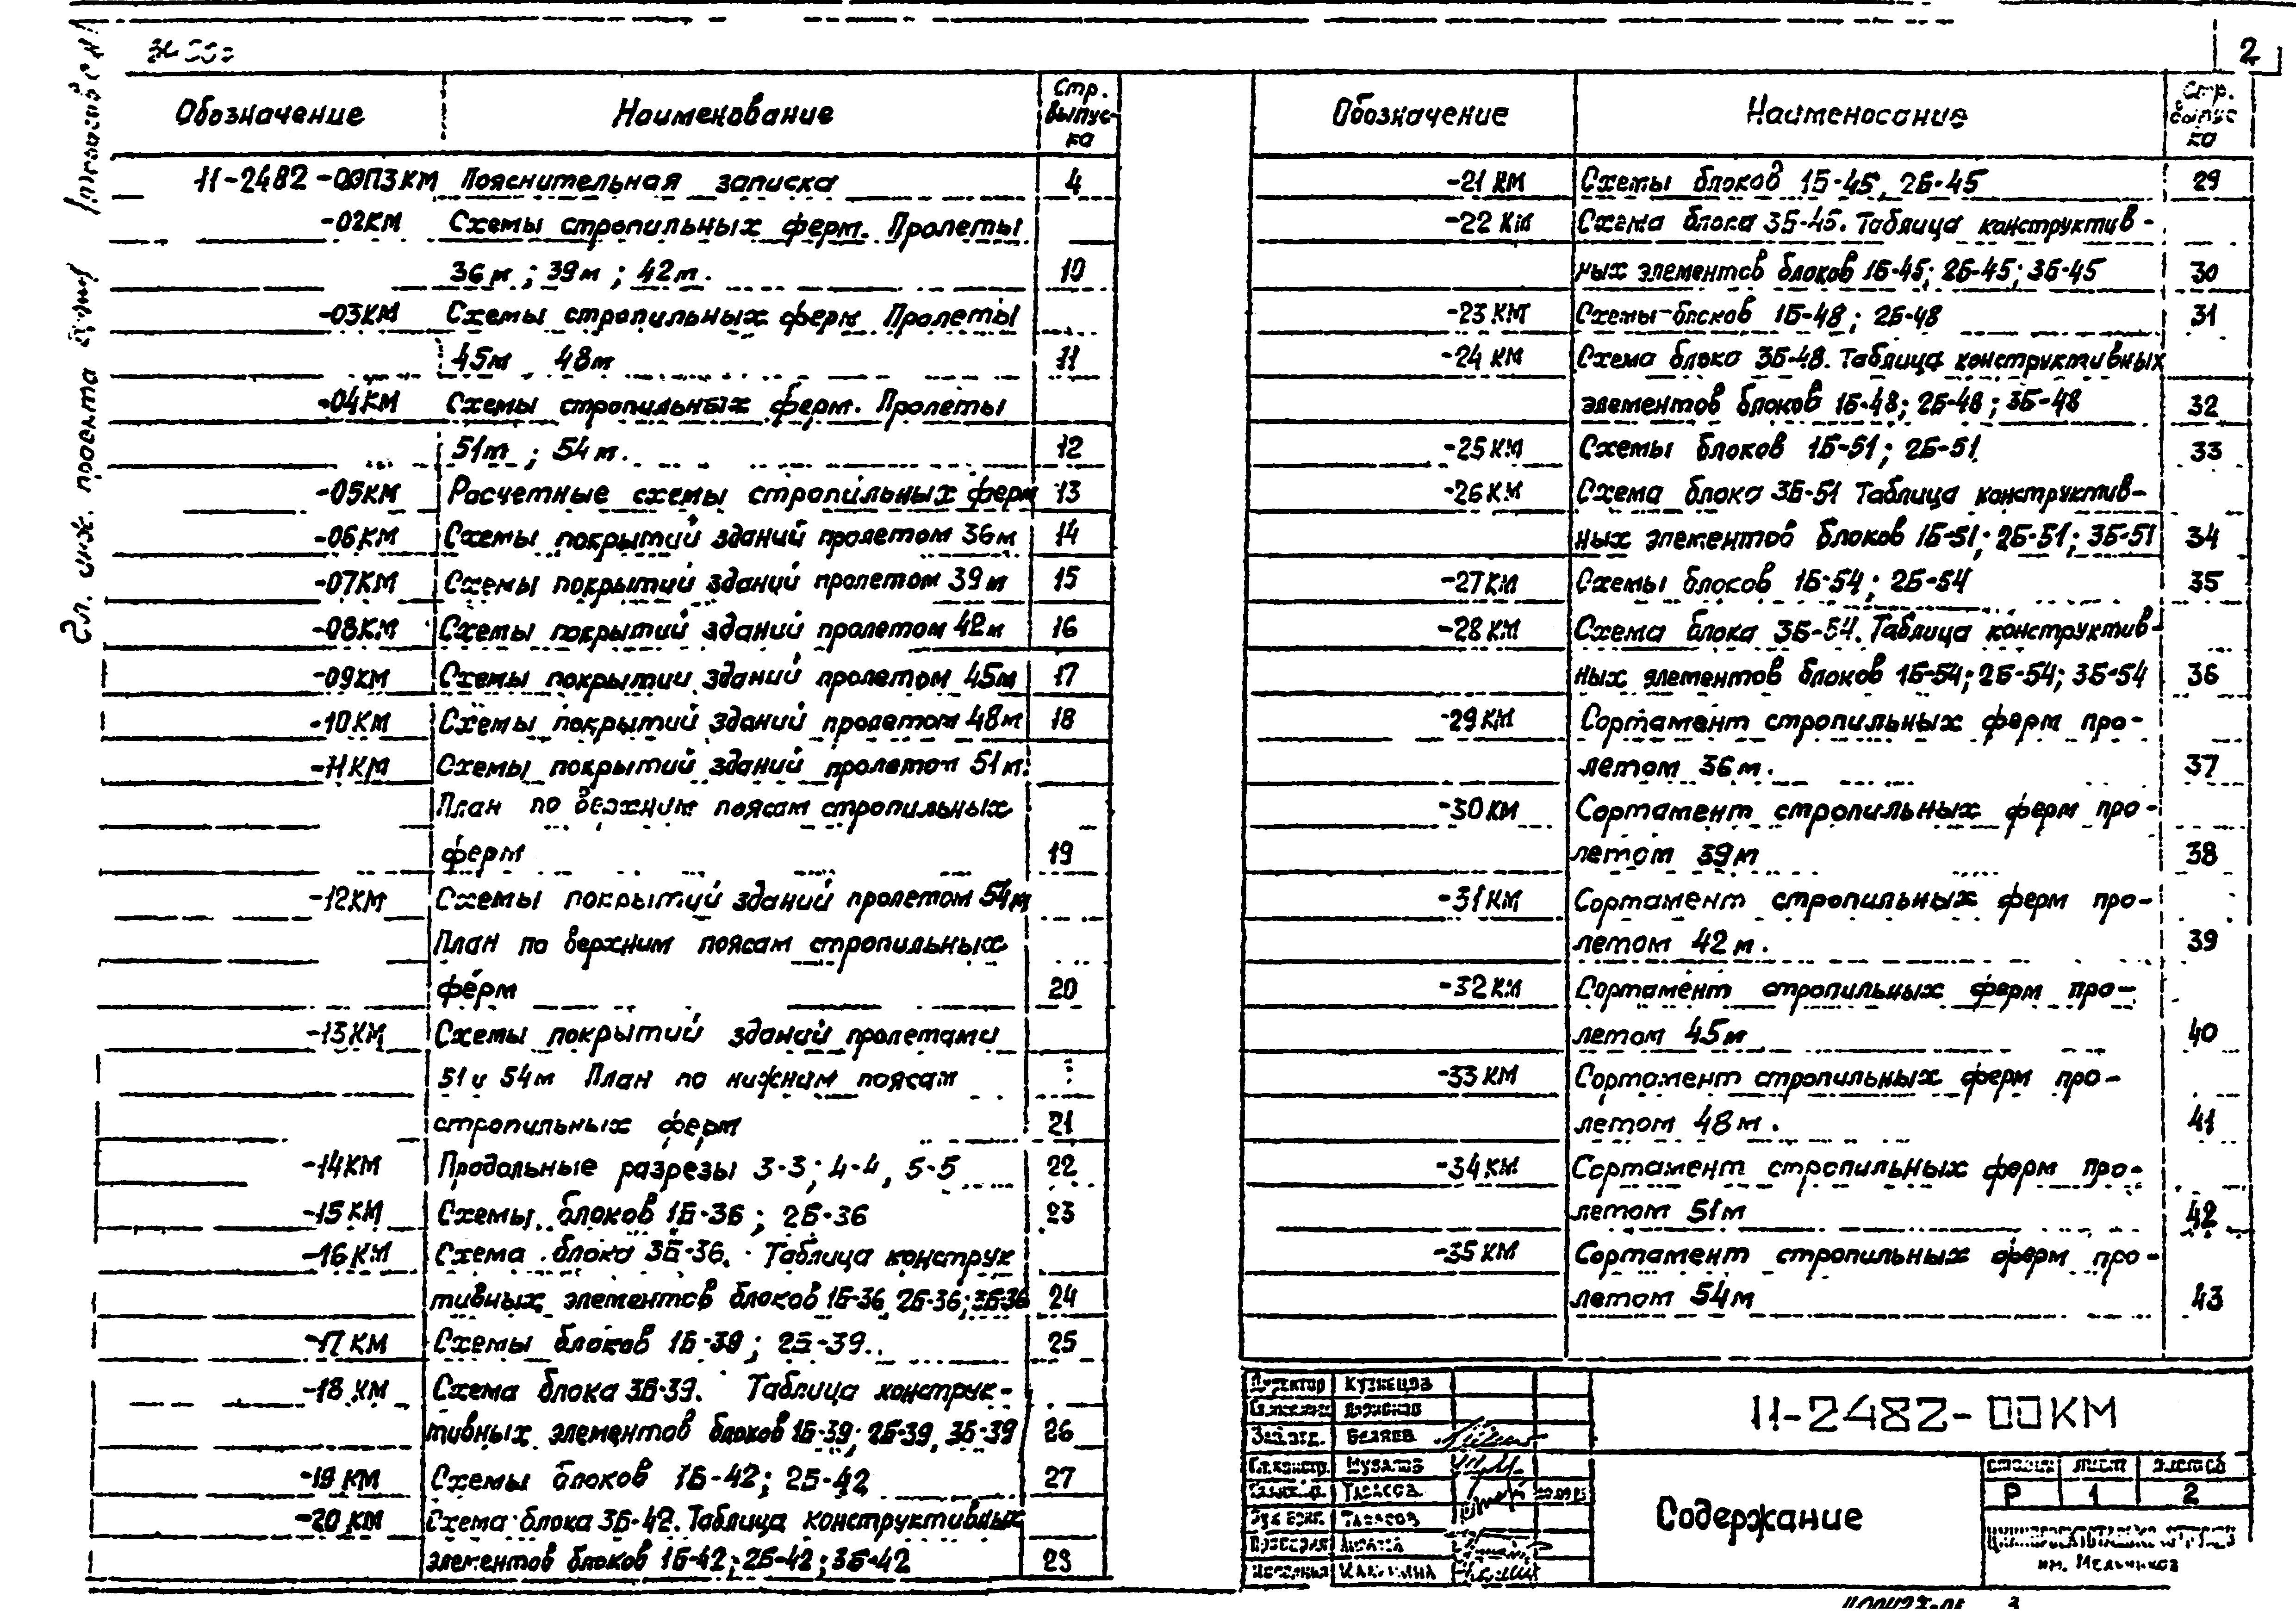 2
Обозначение Наименование Стр. выпус-ка
11-2482-00ПЗКМ Пояснительная записка 4
-02КМ Схемы стропильных ферм. Пролеты
36м; 39м; 42м. 10
-03КМ Схемы стропильных ферм Пролеты
45м 48м 11
-04КМ Схемы стропильных ферм. Пролеты
51м; 54м. 12
-05КМ Расчетные схемы стропильных ферм 13
-06КМ Схемы покрытий зданий пролетом 36м 14
-07КМ Схемы покрытий зданий пролетом 39м 15
-08КМ Схемы покрытий зданий пролетом 42м 16
-09КМ Схемы покрытий зданий пролетом 45м 17
-10КМ Схемы покрытий зданий пролетом 48м 18
-11КМ Схемы покрытий зданий пролетом 51м.
План по верхним поясам стропильных
ферм 19
-12КМ Схемы покрытий зданий пролетом 54м
План по верхним поясам стропильных
ферм 20
-13КМ Схемы покрытий зданий пролетами
51 и 54м План по нижним поясам
стропильных ферм 21
-14КМ Продольные разрезы 3-3; 4-4, 5-5 22
-15КМ Схемы блоков 1Б-36; 2Б-36 23
-16КМ Схема блока 3Б-36. Таблица конструк
тивных элементов блоков 1Б-36 2Б-36; 3Б-36 24
-17КМ Схемы блоков 1Б-39; 2Б-39. 25
-18КМ Схема блока 3Б-39. Таблица конструк-
тивных элементов блоков 1Б-39; 2Б-39, 3Б-39 26
-19КМ Схемы блоков 1Б-42; 2Б-42 27
-20КМ Схема блока 3Б-42. Таблица конструктивных
элементов блоков 1Б-42; 2Б-42; 3Б-42 28
Обозначение Наименование Стр. выпус ка
-21КМ Схемы блоков 1Б-45, 2Б-45 29
-22КМ Схема блока 3Б-45. Таблица конструктив-
ных элементов блоков 1Б-45; 2Б-45; 3Б-45 30
-23КМ Схемы блоков 1Б-48; 2Б-48 31
-24КМ Схема блока 3Б-48. Таблица конструктивных
элементов блоков 1Б-48; 2Б-48; 3Б-48 32
-25КМ Схемы блоков 1Б-51; 2Б-51 33
-26КМ Схема блока 3Б-51 Таблица конструктив-
ных элементов блоков 1Б-51; 2Б-51; 3Б-51 34
-27КМ Схемы блоков 1Б-54; 2Б-54 35
-28КМ Схема блока 3Б-54. Таблица конструктив-
ных элементов блоков 1Б-54; 2Б-54; 3Б-54 36
-29КМ Сортамент стропильных ферм про-
летом 36м. 37
-30КМ Сортамент стропильных ферм про-
летом 39м 38
-31КМ Сортамент стропильных ферм про-
летом 42м. 39
-32КМ Сортамент стропильных ферм про-
летом 45м 40
-33КМ Сортамент стропильных ферм про-
летом 48м. 41
-34КМ Сортамент стропильных ферм про-
летом 51м 42
-35КМ Сортамент стропильных ферм про-
летом 54м 43
Директор Кузнецов
Зав.отд. Беляев
Гл.констр. Шувалов
Тарасов
Рук.бриг. Тарасов
11-2482-00КМ
Содержание
стадия лист листов
Р 1 2
им. Мельникова
Гл. инж. проекта
3